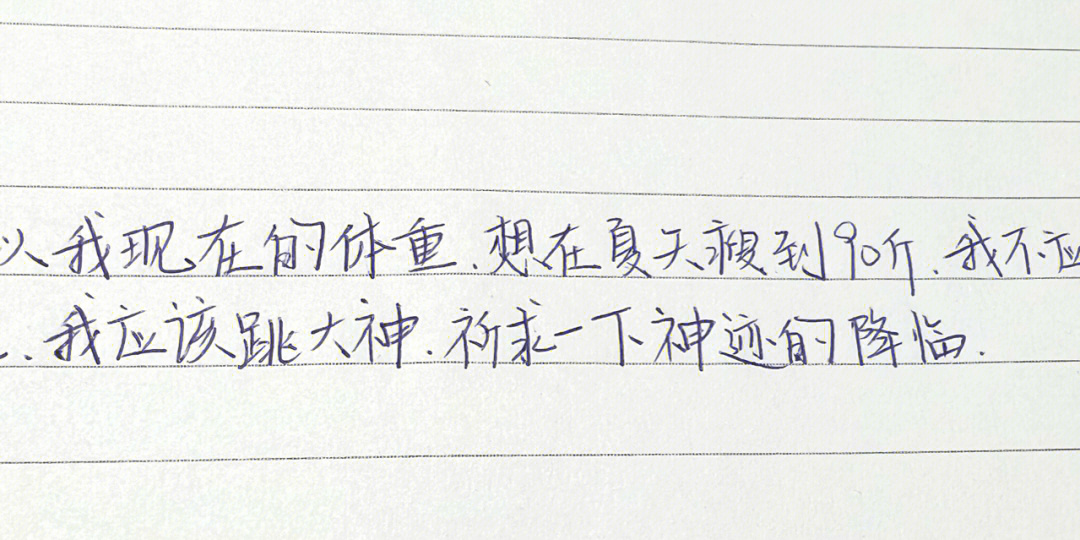 以我现在的体重.想在夏天瘦到90斤.我不应
.我应该跳大神.祈求一下神迹的降临.